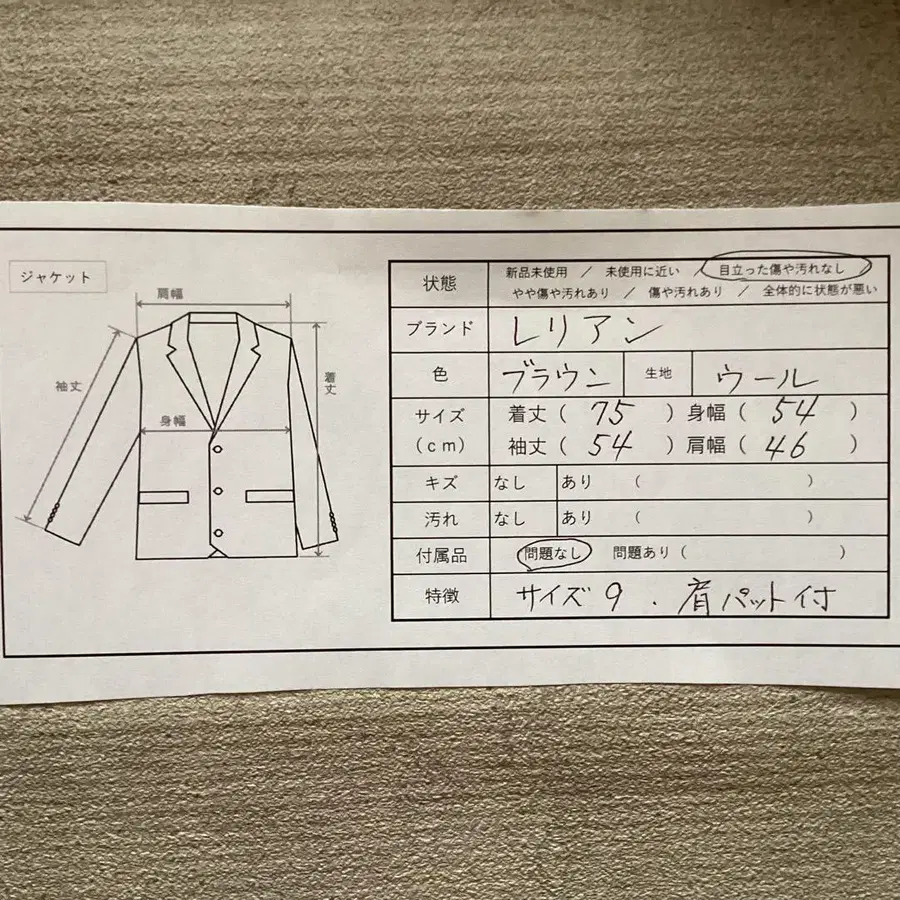 ジャケット
肩幅
袖丈
着丈
身幅
状態
新品未使用 / 未使用に近い / 目立った傷や汚れなし
やや傷や汚れあり / 傷や汚れあり / 全体的に状態が悪い
ブランド レリアン
色 ブラウン 生地 ウール
サイズ 着丈 ( 75 ) 身幅 ( 54 )
(cm) 袖丈 ( 54 ) 肩幅 ( 46 )
キズ なし あり ( )
汚れ なし あり ( )
付属品 問題なし 問題あり ( )
特徴 サイズ9.肩パット付